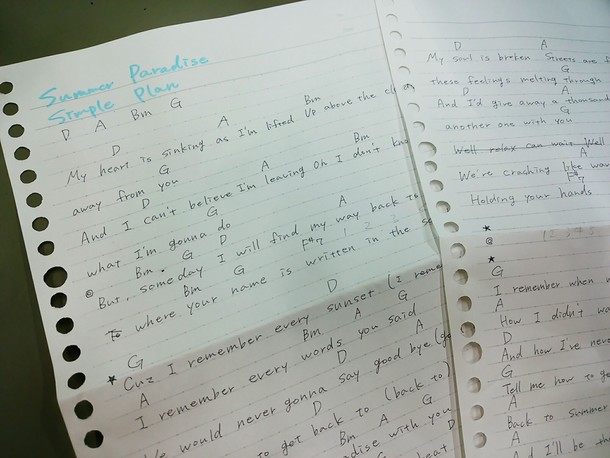 Summer Paradise
Simple Plan
D A Bm G
D A Bm
My heart is sinking as I'm lifted Up above the
G
away from you
D A Bm
And I can't believe I'm leaving Oh I don't
G
what I'm gonna do
Bm G D A
But, someday I will find my way back to
Bm G F#7 1 2 2
To where your name is written in the
G D
★ Cuz I remember every sunset (I
A Bm A G
I remember every words you said
D A
would never gonna say good bye
D
to get back to (back to)
Bm A G
with you
D A
My soul is broken Streets are
G
these feelings melting through
D A
And I'd give away a thousand
G
another one with you
Well relax can wait Well
A
We're crashing like
F#7
Holding your hands
★
1 2 3 4 5
★
G
I remember when
A
How I didn't
D
And how I've
G
Tell me how to
A
Back to summer
A
And I'll be